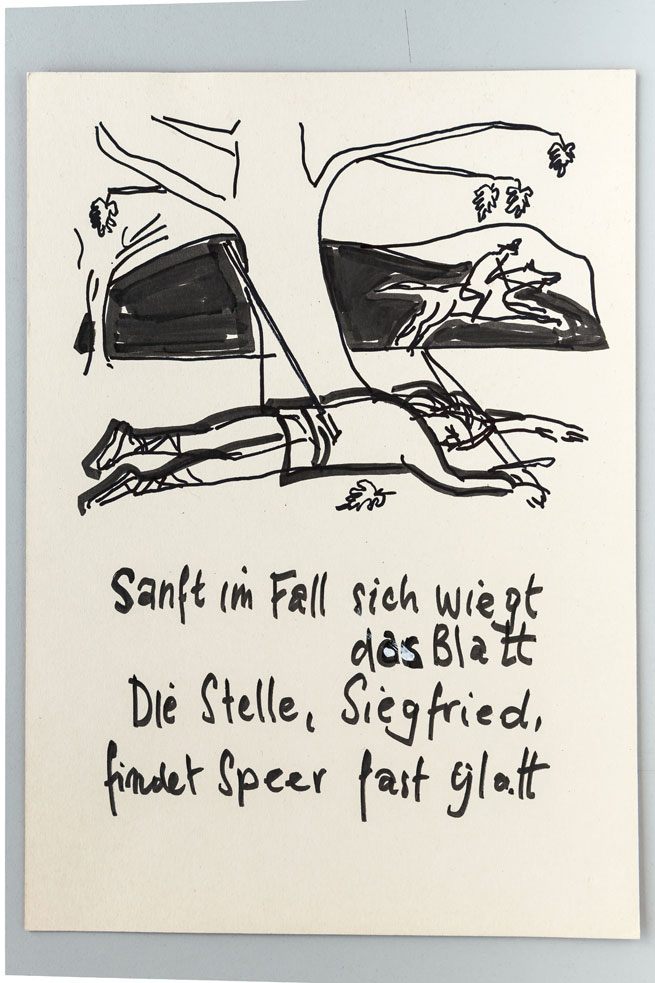 Sanft im Fall sich wiegt
das Blatt
Die Stelle, Siegfried,
findet Speer fast glatt